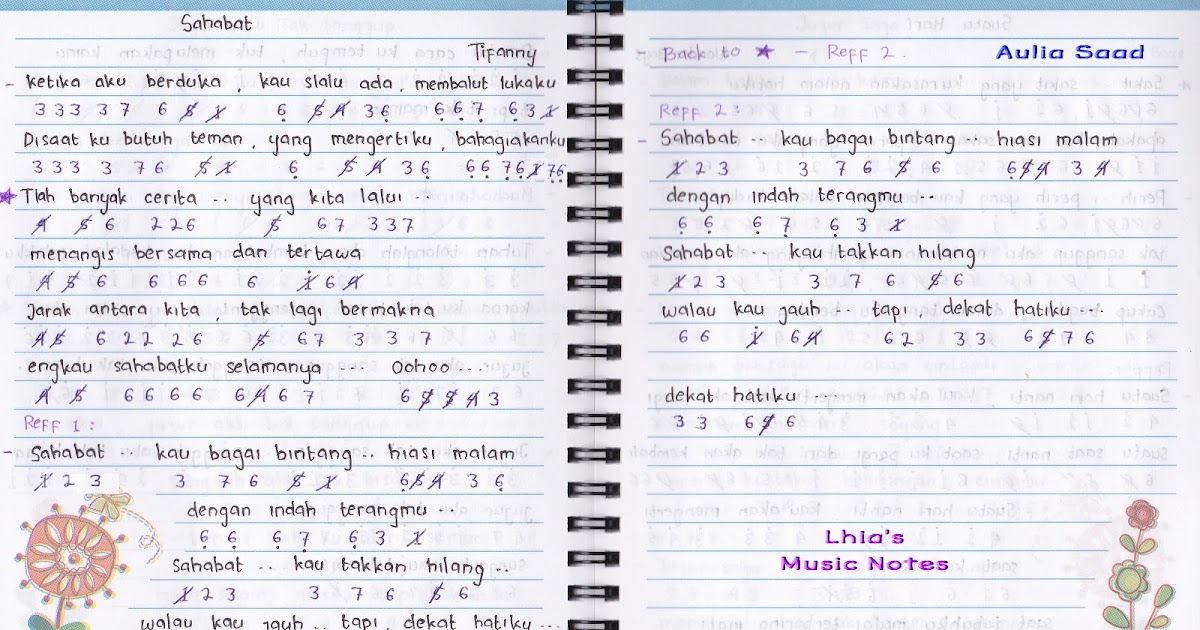 Sahabat
Tifanny
- Ketika aku berduka, kau slalu ada, membalut lukaku
3 3 3 3 7 6 5 1 6 5 4 3 6 6 6 7 6 3 1
Disaat ku butuh teman, yang mengertiku, bahagiakanku
3 3 3 3 7 6 5 1 6 5 4 3 6 6 6 7 6 1 7 6
★ Tlah banyak cerita .. yang kita lalui ..
4 5 6 2 2 6 5 6 7 3 3 7
menangis bersama dan tertawa
4 5 6 6 6 6 6 1 6 4
Jarak antara kita, tak lagi bermakna
4 5 6 2 2 2 6 5 6 7 3 3 3 7
engkau sahabatku selamanya .... Oohoo ...
4 5 6 6 6 6 6 4 6 7 6 5 5 4 3
Reff 1 :
- Sahabat .. kau bagai bintang .. hiasi malam
1 2 3 3 7 6 6 5 1 6 5 4 3 6
dengan indah terangmu ...
6 6 6 7 6 3 1
Sahabat .. kau takkan hilang ...
1 2 3 3 7 6 5 6
walau kau jauh .. tapi, dekat hatiku ...
Back to ★ - Reff 2 .
Aulia Saad
Reff 2 :
- Sahabat .. kau bagai bintang .. hiasi malam
1 2 3 3 7 6 5 6 6 5 4 3 4
dengan indah terangmu ..
6 6 6 7 6 3 1
Sahabat .. kau takkan hilang
1 2 3 3 7 6 5 6
walau kau jauh .. tapi, dekat hatiku ...
6 6 1 6 4 6 2 3 3 6 5 7 6
dekat hatiku .....
3 3 6 5 6
Lhia's
Music Notes